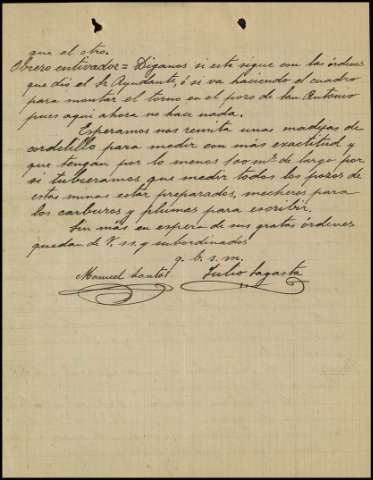 que el otro.
Obrero entivador = Diganos si este sigue con las órdenes
que dió el Sr Ayudante, ó si va haciendo el cuadro
para montar el torno en el pozo de San Antonio
pues aqui ahora no hace nada.
Esperamos nos remita unas madejas de
cordelillo para medir con más exactitud y
que tengan por lo menos 100 mts de largo por
si tubieramos que medir todos los pozos de
estas minas estar preparados, mecheros para
los carburos y plumas para escribir.
Sin más en espera de sus gratas órdenes
quedan de V. ss. y subordinados
q. b. s. m.
Manuel Santos Julio Sagasta